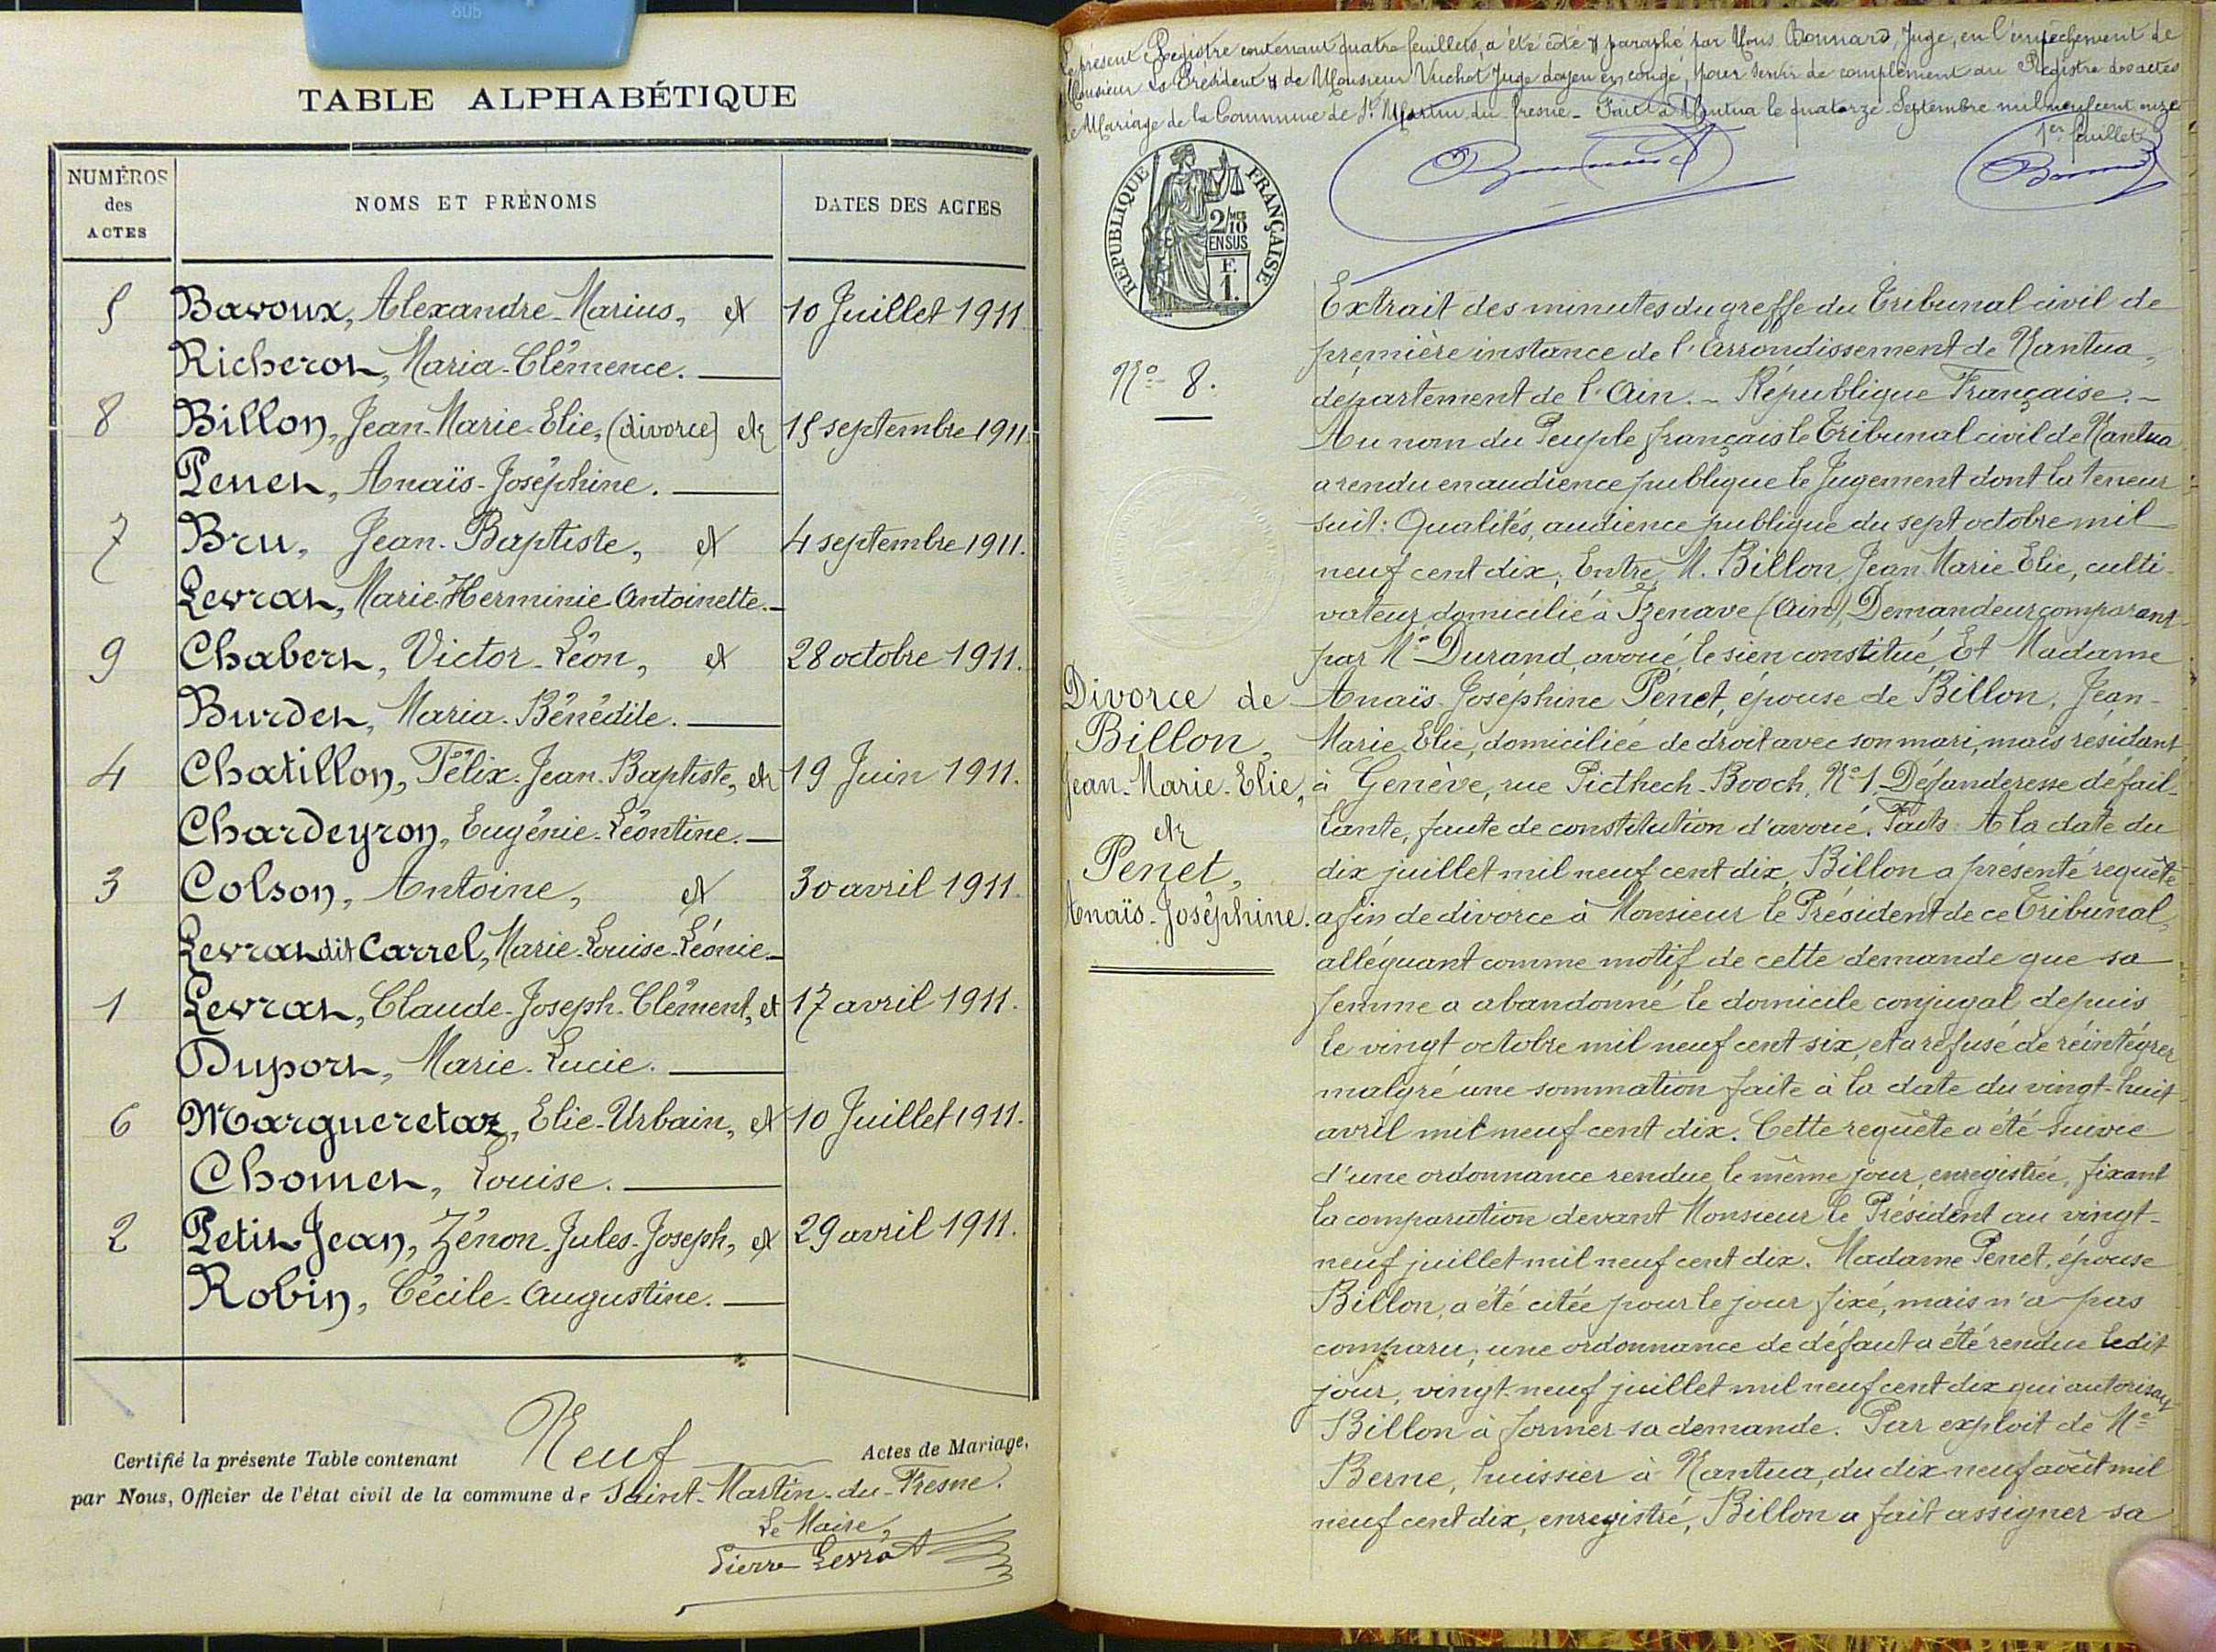 805
TABLE ALPHABÉTIQUE
NUMÉROS des ACTES
NOMS ET PRÉNOMS
DATES DES ACTES
5 Bavoux, Alexandre-Marius, et 10 Juillet 1911.
Richerot, Maria-Clémence.
8 Billon, Jean-Marie-Elie, (divorce) et 15 septembre 1911.
Penet, Anaïs-Joséphine.
7 Bru, Jean-Baptiste, et 4 septembre 1911.
Levrat, Marie-Herminie-Antoinette.
9 Chabert, Victor-Léon, et 28 octobre 1911.
Burdet, Maria-Bénédite.
4 Chatillon, Félix-Jean-Baptiste, et 19 Juin 1911.
Chardeyron, Eugénie-Léontine.
3 Colson, Antoine, et 30 avril 1911.
Levrat dit Carrel, Marie-Louise-Léonie
1 Levrat, Claude-Joseph-Clément, et 17 avril 1911.
Duport, Marie-Lucie.
6 Margueretaz, Elie-Urbain, et 10 Juillet 1911.
Chomet, Louise.
2 Petit Jean, Zénon-Jules-Joseph, et 29 avril 1911.
Robin, Cécile-Augustine.
Certifié la présente Table contenant Neuf Actes de Mariage,
par Nous, Officier de l'état civil de la commune de Saint-Martin-du-Fresne.
Le Maire,
Pierre Levrat
Le présent Registre contenant quatre feuillets, a été coté & paraphé par Nous Bonnard, Juge, en l'empêchement de
Monsieur Le Président & de Monsieur Vuchot Juge doyen en congé, pour servir de complément au Registre des actes
de Mariage de la Commune de St Martin du Fresne - Fait à Nantua le quatorze Septembre mil neuf cent onze
1er feuillet
Bonnard
Bonnard
RÉPUBLIQUE FRANÇAISE
2/10 MES
EN SUS
F.
1.
No 8.
Divorce de
Billon,
Jean-Marie-Elie,
et
Penet,
Anaïs-Joséphine.
Extrait des minutes du greffe du Tribunal civil de
première instance de l'Arrondissement de Nantua,
département de l'Ain. - République Française. -
Au nom du Peuple français le Tribunal civil de Nantua
a rendu en audience publique le Jugement dont la teneur
suit: Qualités, audience publique du sept octobre mil
neuf cent dix. Entre M. Billon, Jean Marie Elie, culti-
vateur, domicilié à Izenave (Ain), Demandeur comparant
par Me Durand, avoué, le sien constitué, Et Madame
Anaïs Joséphine Penet, épouse de Billon, Jean-
Marie Elie, domiciliée de droit avec son mari, mais résidant
à Genève, rue Picthech-Booch, No 1, Défenderesse défail-
lante, faute de constitution d'avoué. Faits: A la date du
dix juillet mil neuf cent dix, Billon a présenté requête
afin de divorce à Monsieur le Président de ce Tribunal,
alléguant comme motif de cette demande que sa
femme a abandonné le domicile conjugal, depuis
le vingt octobre mil neuf cent six, et a refusé de réintégrer
malgré une sommation faite à la date du vingt-huit
avril mil neuf cent dix. Cette requête a été suivie
d'une ordonnance rendue le même jour, enregistrée, fixant
la comparution devant Monsieur le Président au vingt-
neuf juillet mil neuf cent dix. Madame Penet, épouse
Billon, a été citée pour le jour fixé, mais n'a pas
comparu; une ordonnance de défaut a été rendue ledit
jour, vingt-neuf juillet mil neuf cent dix qui autorisait
Billon à former sa demande. Par exploit de Me
Berne, huissier à Nantua, du dix neuf août mil
neuf cent dix, enregistré, Billon a fait assigner sa